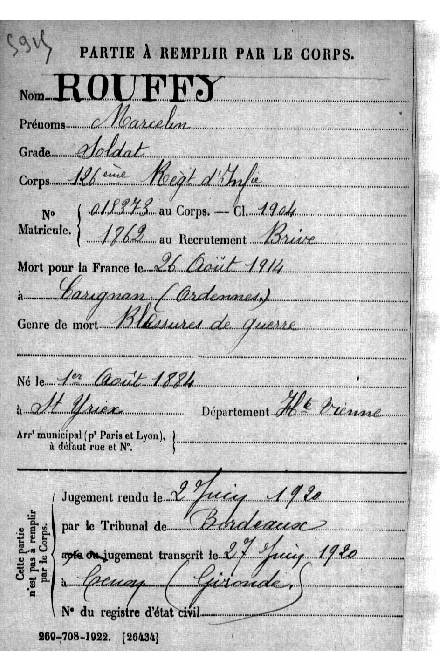 5915
PARTIE À REMPLIR PAR LE CORPS.
Nom ROUFFY
Prénoms Marcelin
Grade Soldat
Corps 126ème Régt d'Infie
No Matricule. { 018273 au Corps. — Cl. 1904
1762 au Recrutement Brive
Mort pour la France le 26 Août 1914
à Carignan (Ardennes)
Genre de mort Blessures de guerre
Né le 1er Août 1884
à St Yriex Département Hte Vienne
Arrt municipal (pr Paris et Lyon), à défaut rue et No. }
Cette partie n'est pas à remplir par le Corps.
Jugement rendu le 2 Juin 1920
par le Tribunal de Bordeaux
acte ou jugement transcrit le 27 Juin 1920
à Cenon (Gironde)
No du registre d'état civil
260-708-1922. [26434]